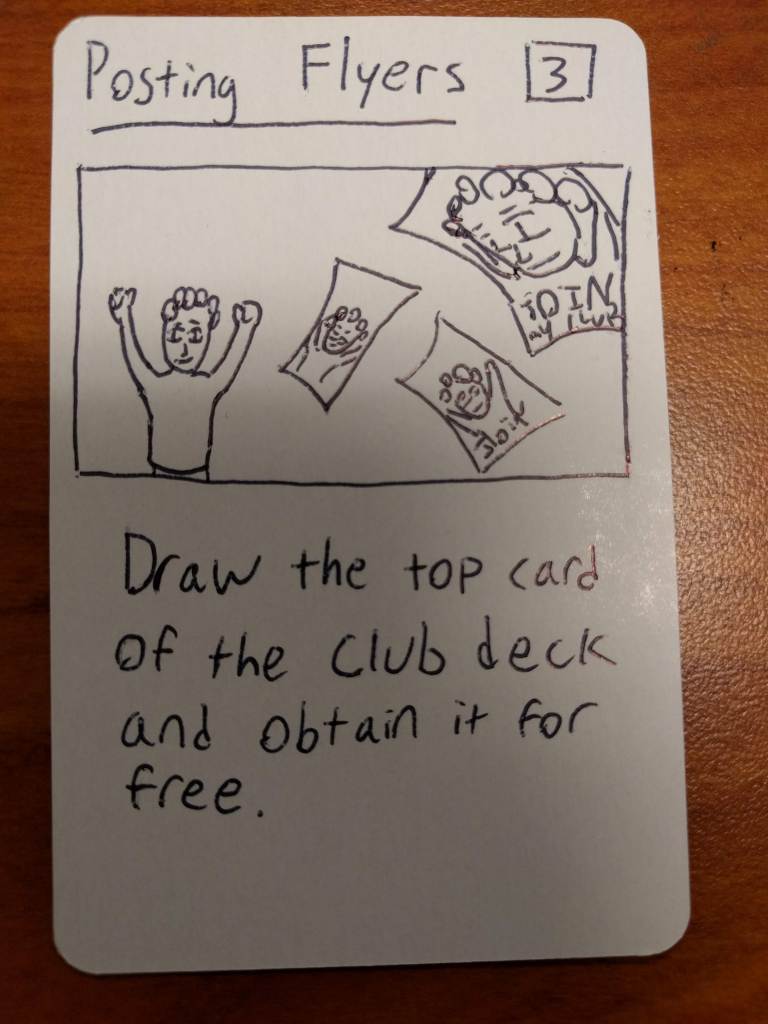 Posting Flyers 3
JOIN
my CLUB
Do it
Draw the top card
of the Club deck
and obtain it for
free.